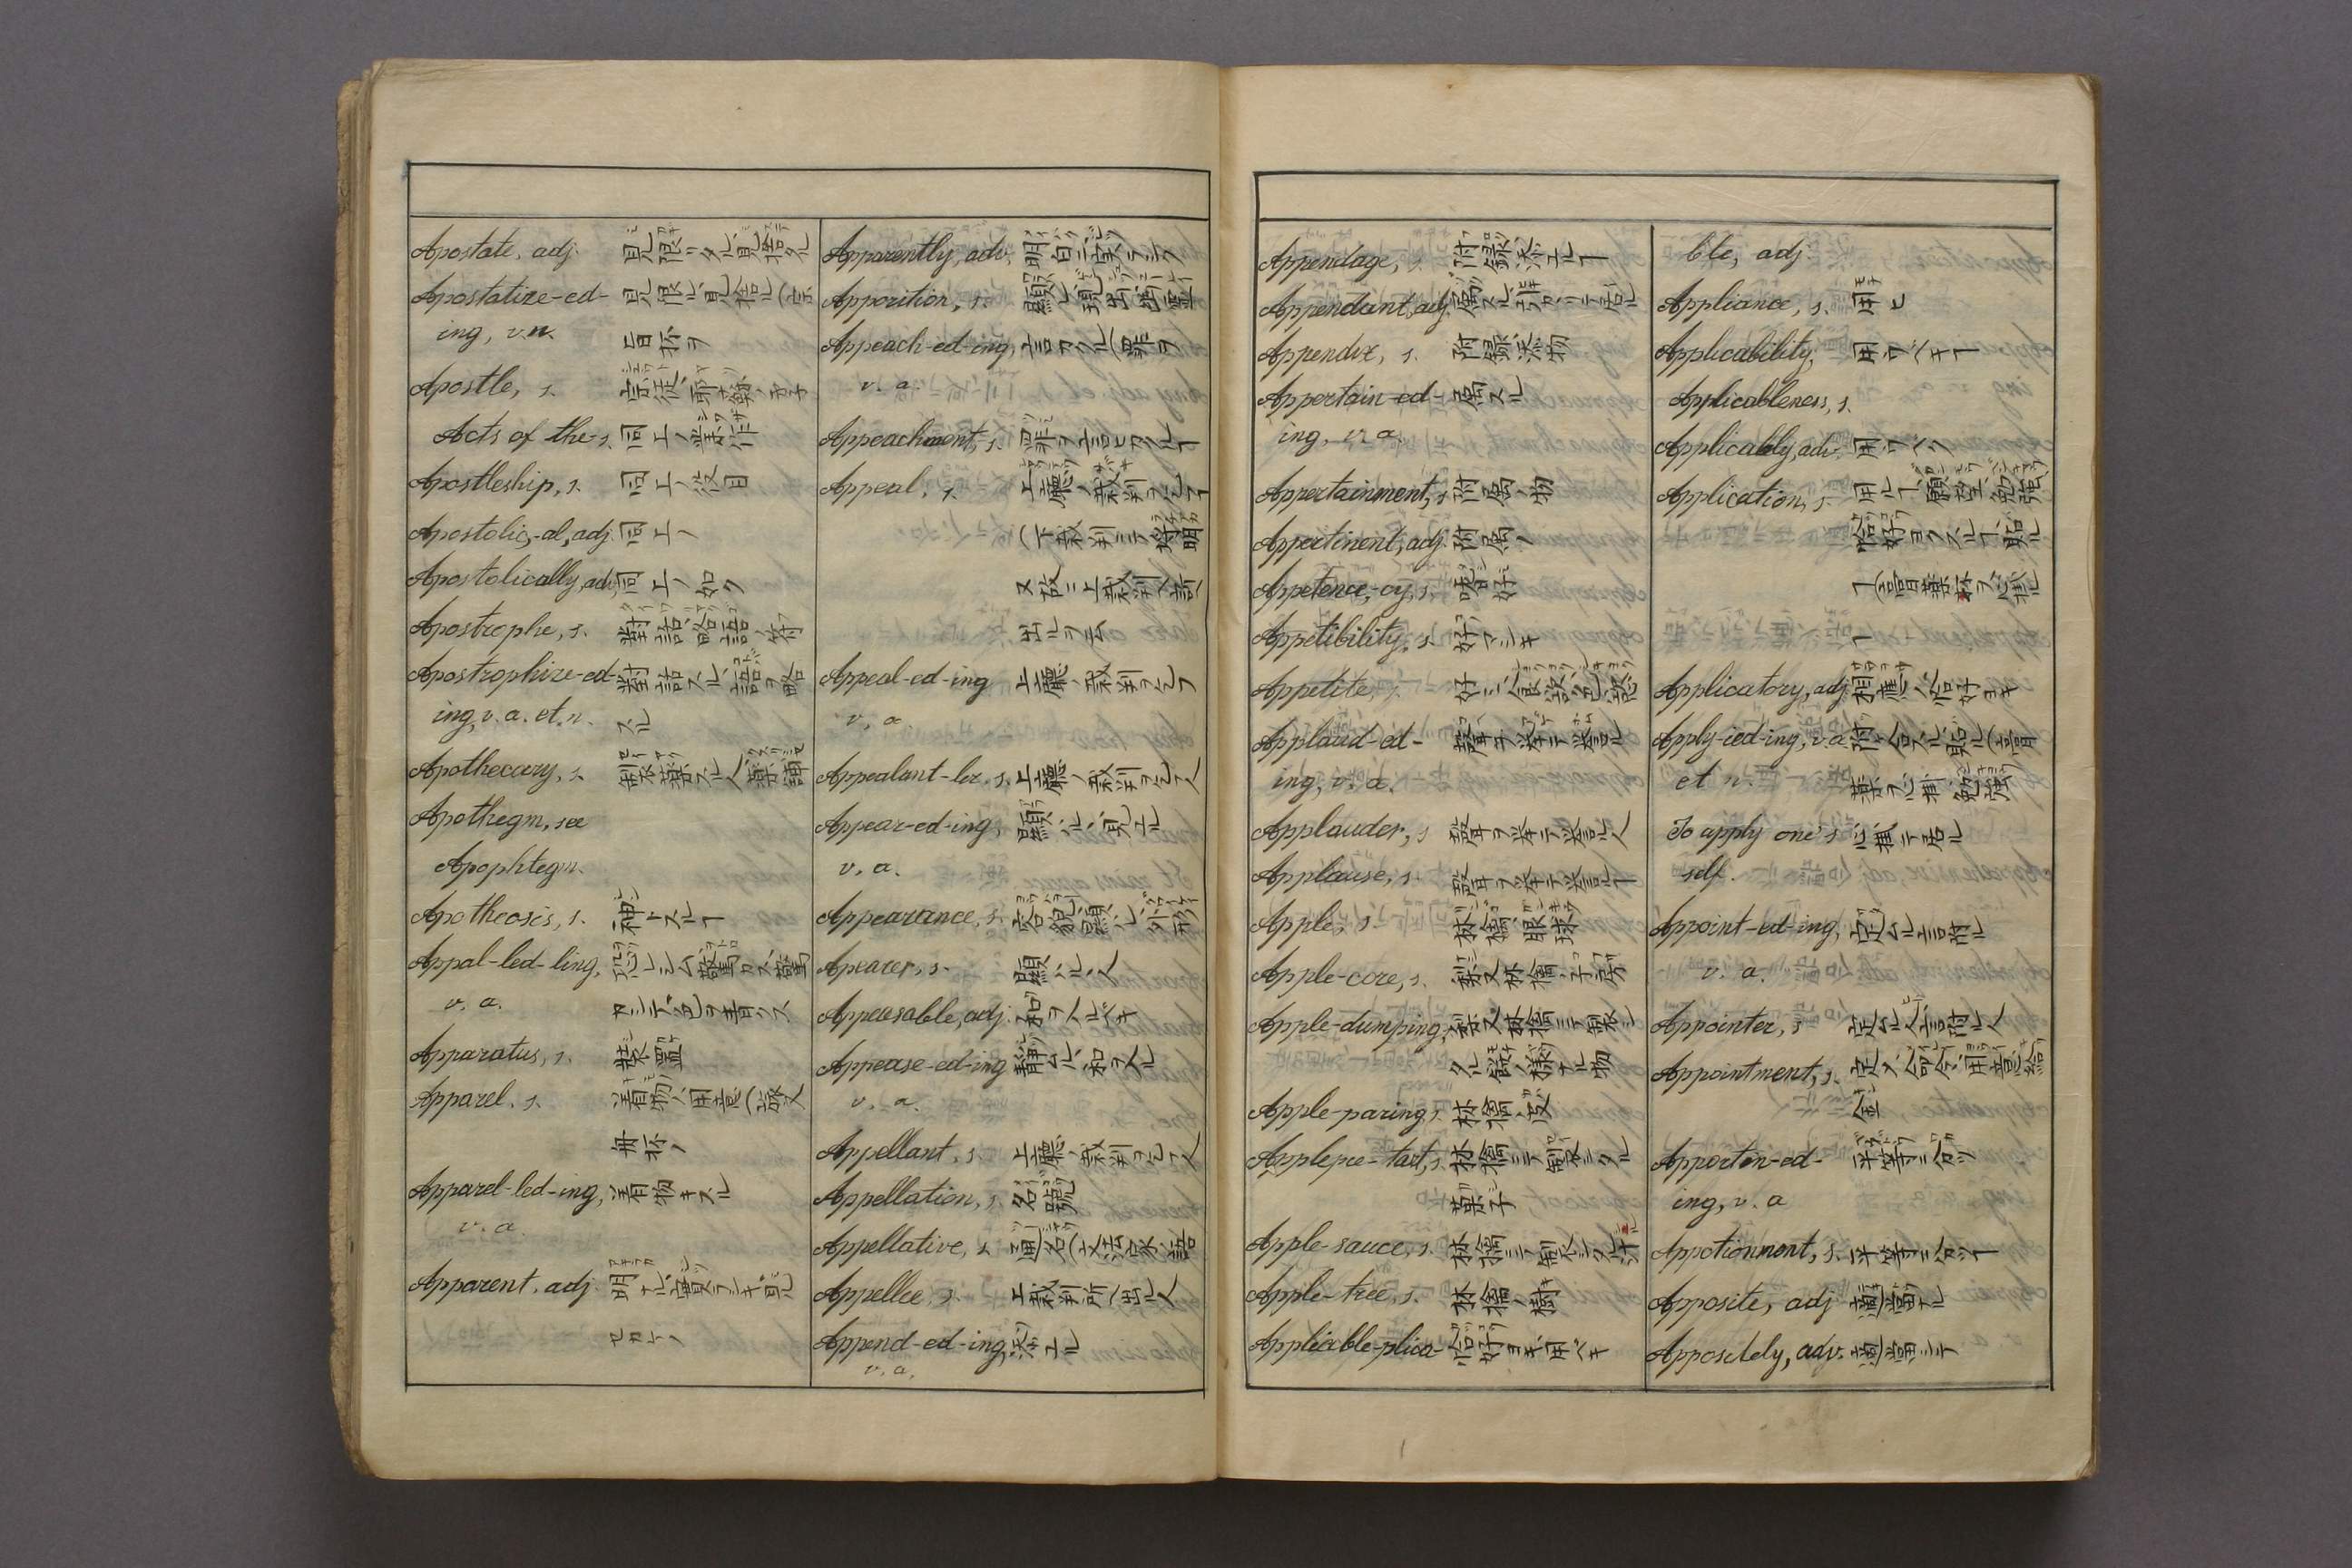 Apostate, adj. 見限リタル、見捨タル
Apostatize-ed- 見限ル、見捨ル(宗
ing, v.n. 旨抔ヲ
Apostle, s. 宗徒、耶蘇ノ弟子
Acts of the-s. 同上ノ業作
Apostleship, s. 同上ノ役目
Apostolic,-al, adj. 同上ノ
Apostolically, adv. 同上ノ如ク
Apostrophe, s. 對話、略語ノ符
Apostrophize-ed- 對話スル、語ヲ略
ing, v.a. et. n. スル
Apothecary, s. 製薬スル人、薬鋪
Apothegm, see
Apophtegm.
Apotheosis, s. 神トスルヿ
Appal-led-ling, 恐レシム、驚カス、驚
v. a. カシテ色ヲ青クス
Apparatus, s. 装置
Apparel. s. 着物、用意(敵人
毋抔ノ
Apparel-led-ing, 着物キスル
v. a
Apparent, adj. 明ナル、實ラシキ、見
セカケノ
Apparently, adv. 明白ニ、實ラシク
Apporition, s. 顕レ、現出、幽霊
Appeach-ed-ing, 言フクル(罪ヲ
v. a.
Appeachment, s. 罪ヲ言ヒフクルヿ
Appeal, s. 上廳ノ裁判ヲ乞フヿ
(下裁判ニテ埒明
又故ニ上裁判ヘ訴
出ルヲ云
Appeal-ed-ing 上廳ノ裁判ヲ乞フ
v, a.
Appealant-ler. s. 上廳ノ裁判ヲ乞フ人
Appear-ed-ing, 顕ハル、見エル
v. a.
Appearance, s. 容貌、顕レ、外形
Apearer, s. 顕ハル人
Appeasable, adj. 和ヲ入ルベキ
Appease-ed-ing 静ムル、和ヲ入ル
v. a.
Appellant, s. 上廳ノ裁判ヲ乞フ人
Appellation, s. 名號
Appellative, s. 通名(文法家ノ語
Appellee, s. 上裁判所ヘ出ル人
Append-ed-ing, 添エル
v. a.
Appendage, s. 附録、添エルヿ
Appendant, adj. 屬スル、掛カリテ居ル
Appendix, s. 附録、添物
Appertain-ed- 屬スル
ing, v. a.
Appertainment, s. 附屬ノ物
Appertinent, adj. 附屬ノ
Appetence,-cy, s. 嗜好
Appetibility, s. 好マシキ
Appetite, s. 好ミ、食欲、色慾
Applaud-ed- 聲ヲ挙テ誉ル
ing, v. a.
Applauder, s 聲ヲ挙テ誉ル人
Applause, s. 聲ヲ挙テ誉ルヿ
Apple, s. 林檎、眼球
Apple-core, s. 梨又林檎ノ子房
Apple-dumping, 梨又林檎ニテ製シ
タル餅ノ様ナル物
Apple-paring s. 林檎ノ皮
Applepie-tart, s. 林檎ニテ製シタル
菓子
Apple-sauce, s. 林檎ニテ製シタル汁
Apple-tree, s. 林檎ノ樹
Appliable-plica- 恰好ヨキ、用ベキ
ble, adj
Appliance, s. 用ヒ
Applicability, 用ウベキヿ
Applicableness, s.
Applicably, adv. 用ウベク
Application, s. 用ルヿ、願望、勉強
恰好ヨクスルヿ、貼ル
ヿ(膏薬抔ヲ)、心掛ル
ヿ
Applicatory, adj 相應ノ、恰好ヨキ
Apply-ied-ing, v.a 附ケ合スル、貼ル(膏
et n. 薬ヲ)、心掛、勉強
To apply one's 心掛テ居ル
self.
Appoint-ed-ing, 定ムル、言附ル
v. a.
Appointer, s 定ムル人、言附ル人
Appointment, s. 定メ、命令、用意、給
金
Apportin-ed- 平等ニ分ツ
ing, v. a
Appotionment, s. 平等ニ分ツヿ
Apposite, adj 適當ナル
Appositely, adv. 適當シテ